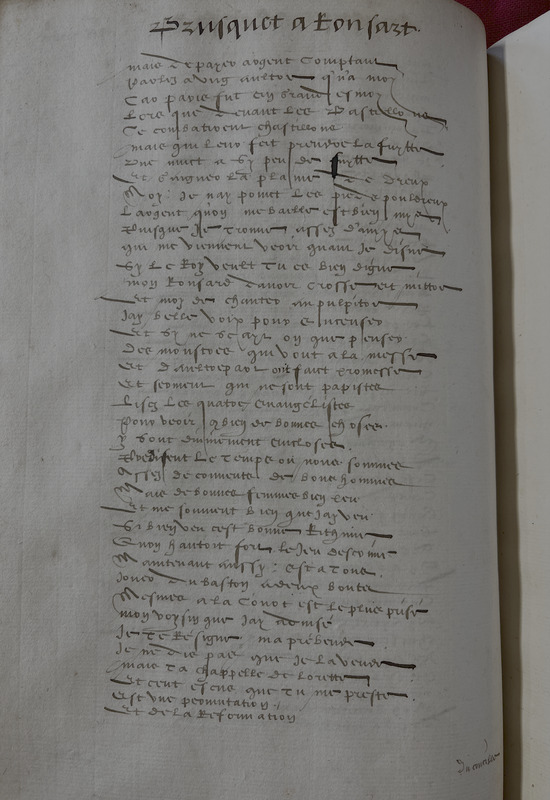 Brusquet a Ronsart.
mais de payer argent Comptant
Parlez a ung aultre qu'a moy
Car paris fut en grand esmoy
Lors que devant Les Bastillons
Se combatirent chastillons
mais qui leur feit prendre La fuytte
Une nuict a sy peu de fuytte
Et saigner la plaine de Dreux
Moy: Je nay point Les piedz pouldreux
Largent quon me baille est bien mys
Puisque Je trouve assez damys
qui me viennent veoir quant Je disne
Sy Le Roy veult tu es bien digne
mon Ronsard davoir Crosse et mittre
Et moy de chanter au pulpitre
Jay belle voix pour s
Et sy ne scay on que penser
Des monstres qui vont a la messe
Et d'aultrepar ont faict promesse
Et serment qui ne sont papistes
Lisez Les quatre Evangelistes
Pour veoir combien de bonnes choses
Y sont divinement encloses.
le temps ou nous sommes
Assez de couvents de bons hommes
Mais de bonnes femmes bien peu
Et me souvient bien que Jay veu
Si bien veu est bonne Rithme
Quon hantoit fort le Jeu descrime
Maintenant aussy: est a tous
Jouer du baston a deux boutz
Mesmes a la Court est le plus prisé
mon voysin que Jay advisé
Je te Resigne ma prebende
Je ne dis pas que Je la vende
mais ta chappelle de Lorette
Et cent escus que tu me preste
Est une permutation
Et de la Reformation